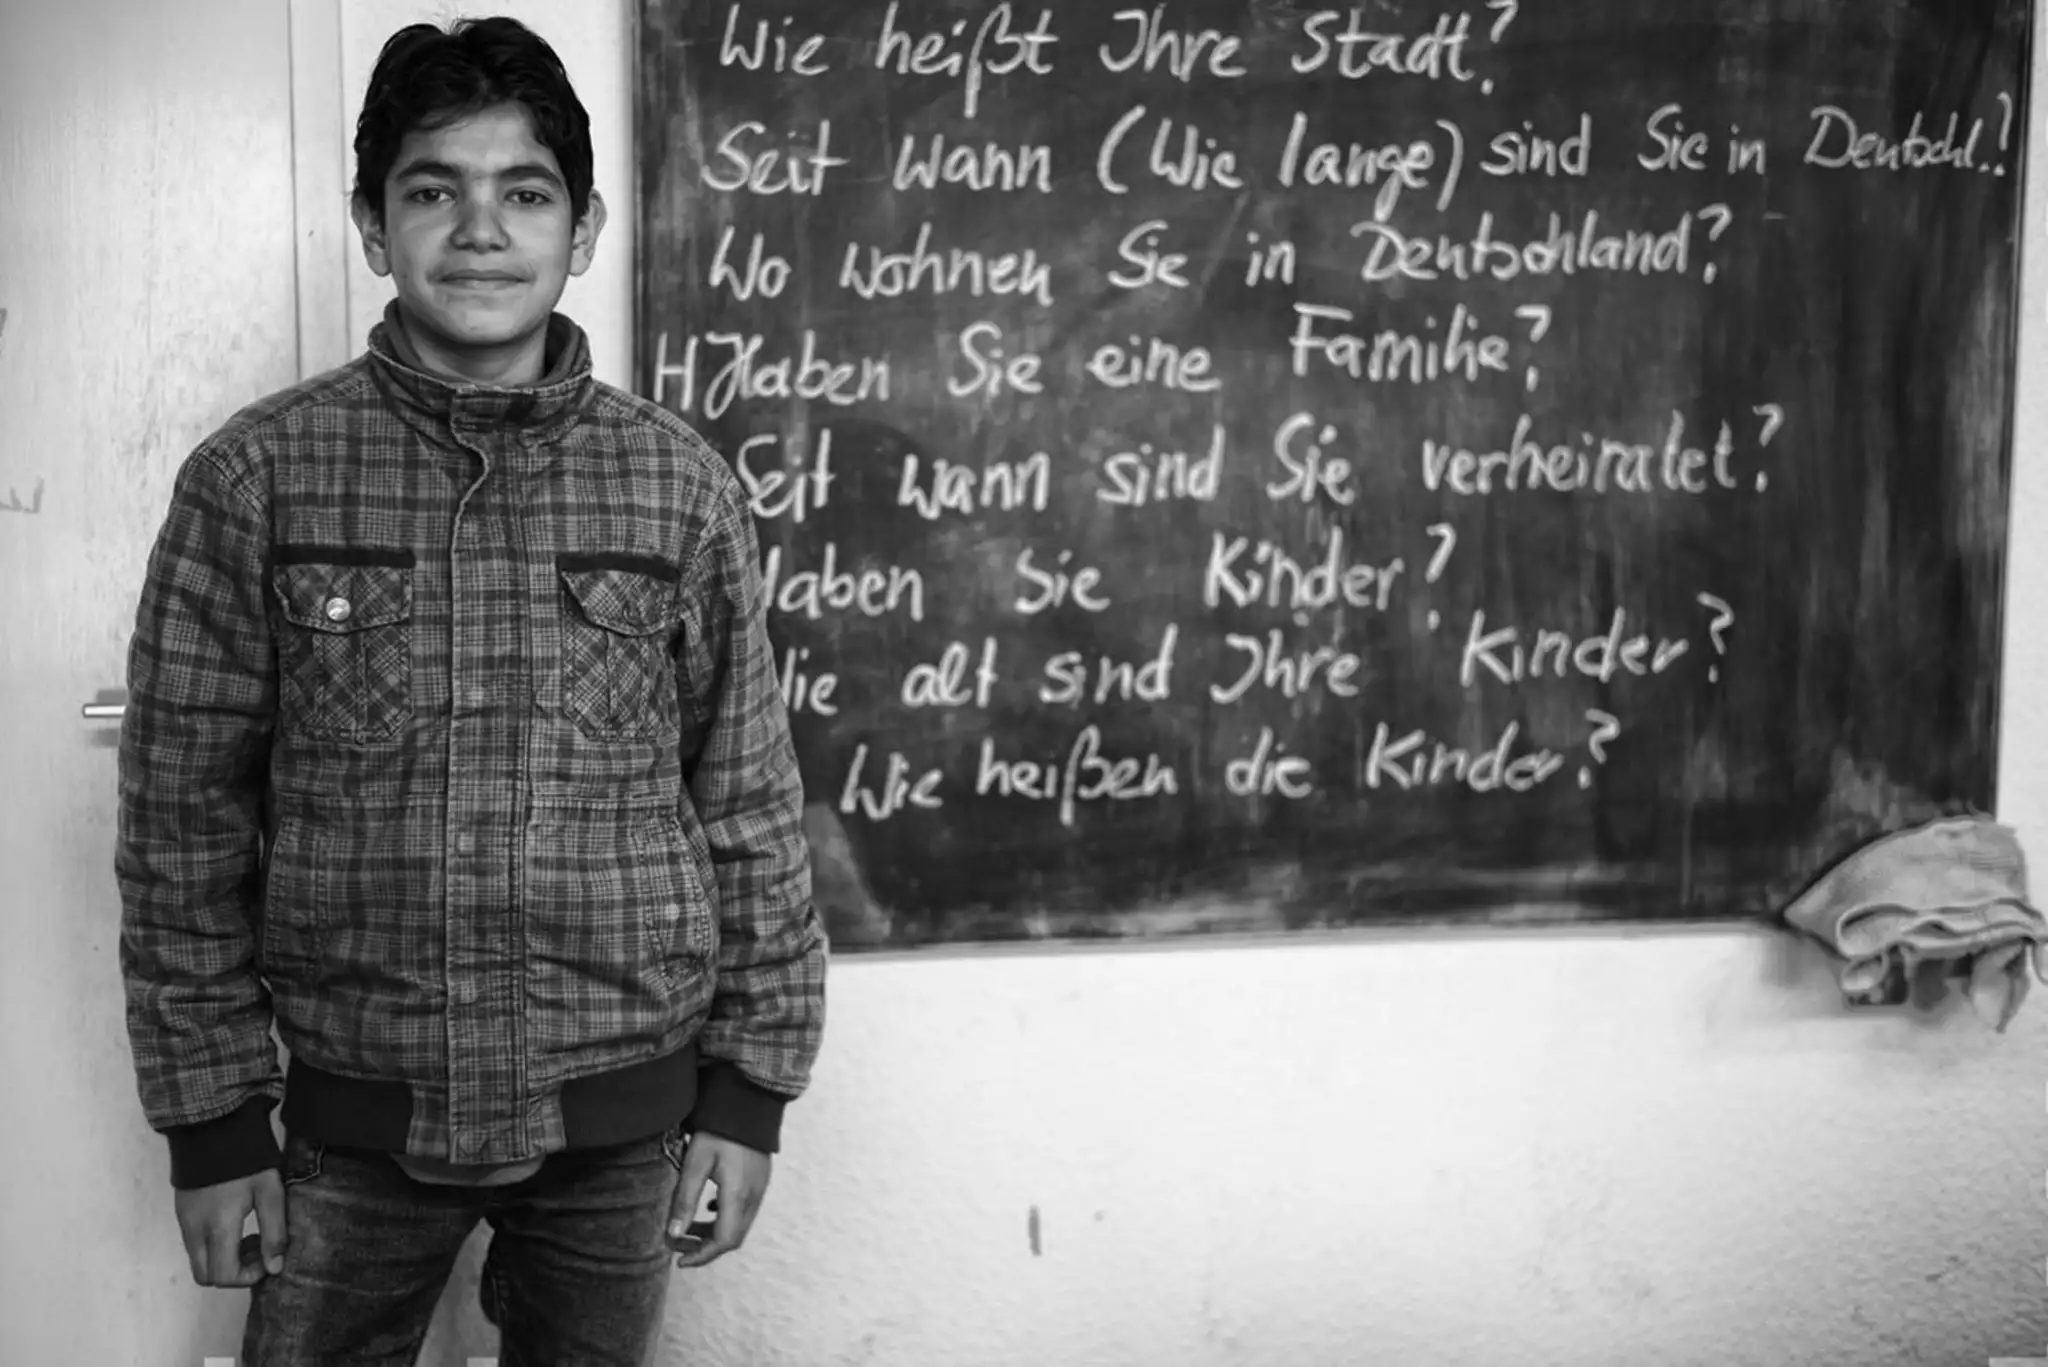 Wie heißt Ihre Stadt?
Seit wann (Wie lange) sind Sie in Deutschl.?
Wo wohnen Sie in Deutschland?
H Haben Sie eine Familie?
Seit wann sind Sie verheiratet?
aben Sie Kinder?
ie alt sind Ihre Kinder?
Wie heißen die Kinder?